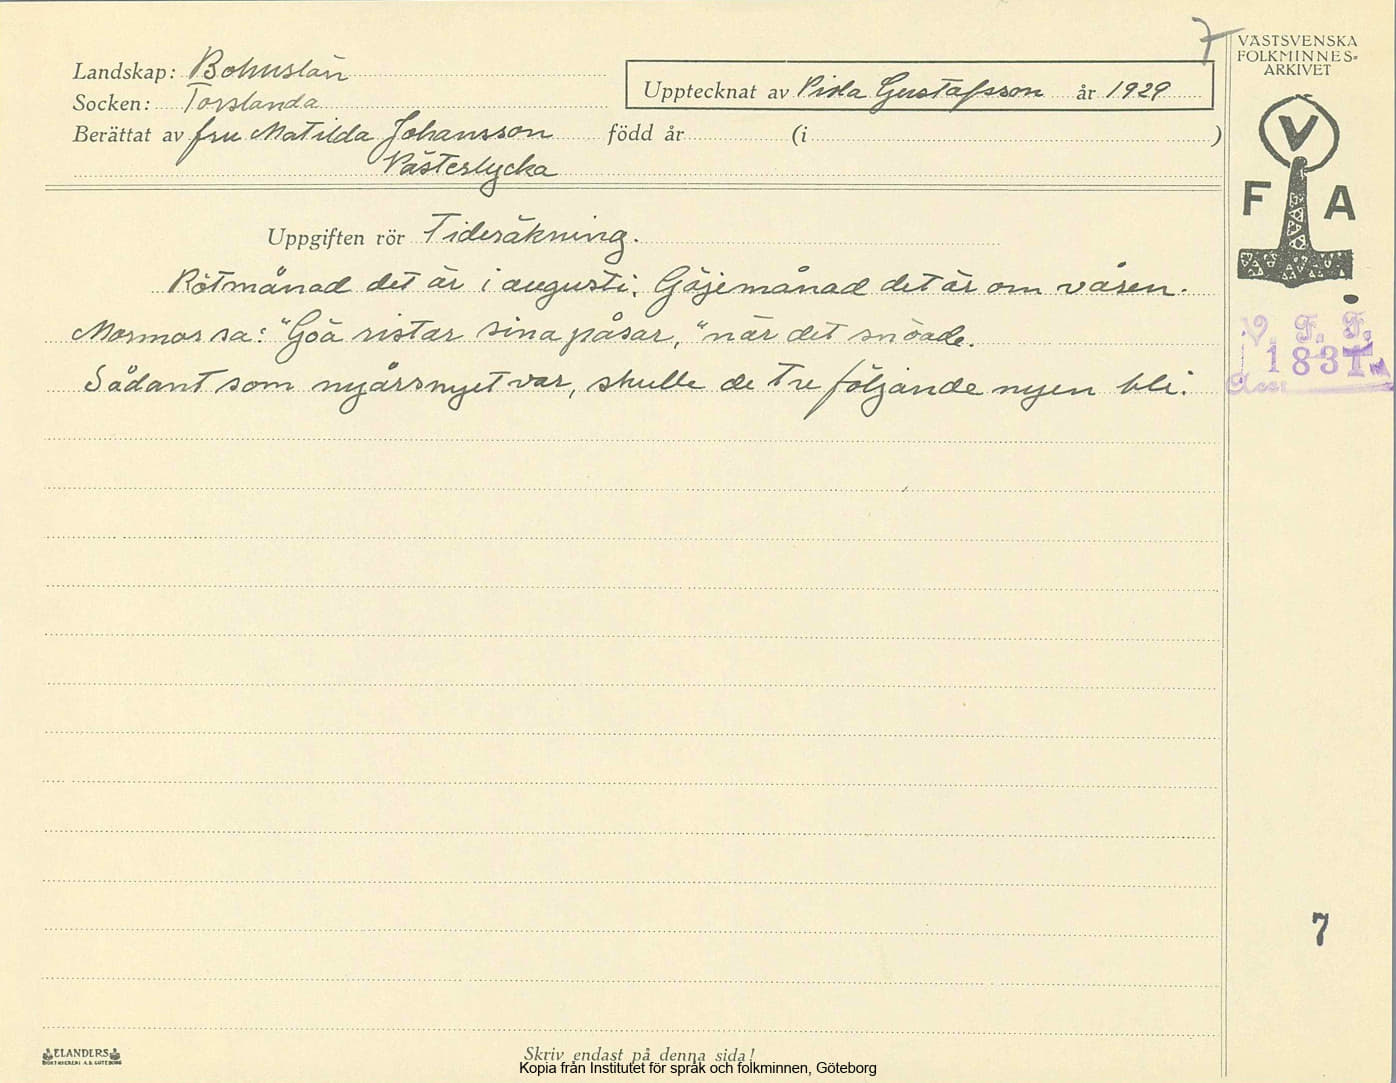 7
VÄSTSVENSKA
FOLKMINNES-
ARKIVET
Landskap: Bohuslän
Socken: Torslanda
Upptecknat av Gustafsson år 1929
Berättat av fru Matilda Johansson född år (i )
Västerlycka
V
F A
Uppgiften rör Tideräkning.
Rötmånad det är i augusti. Göjemånad det är om våren.
Mormor sa: "Göa ristar sina påsar," när det snöade.
Sådant som nyårsnyet var, skulle de tre följande nyen bli.
V. F. F.
1831
Acc.
7
ELANDERS
BOKTRYCKERI A.B. GÖTEBORG
Skriv endast på denna sida!
Kopia från Institutet för språk och folkminnen, Göteborg